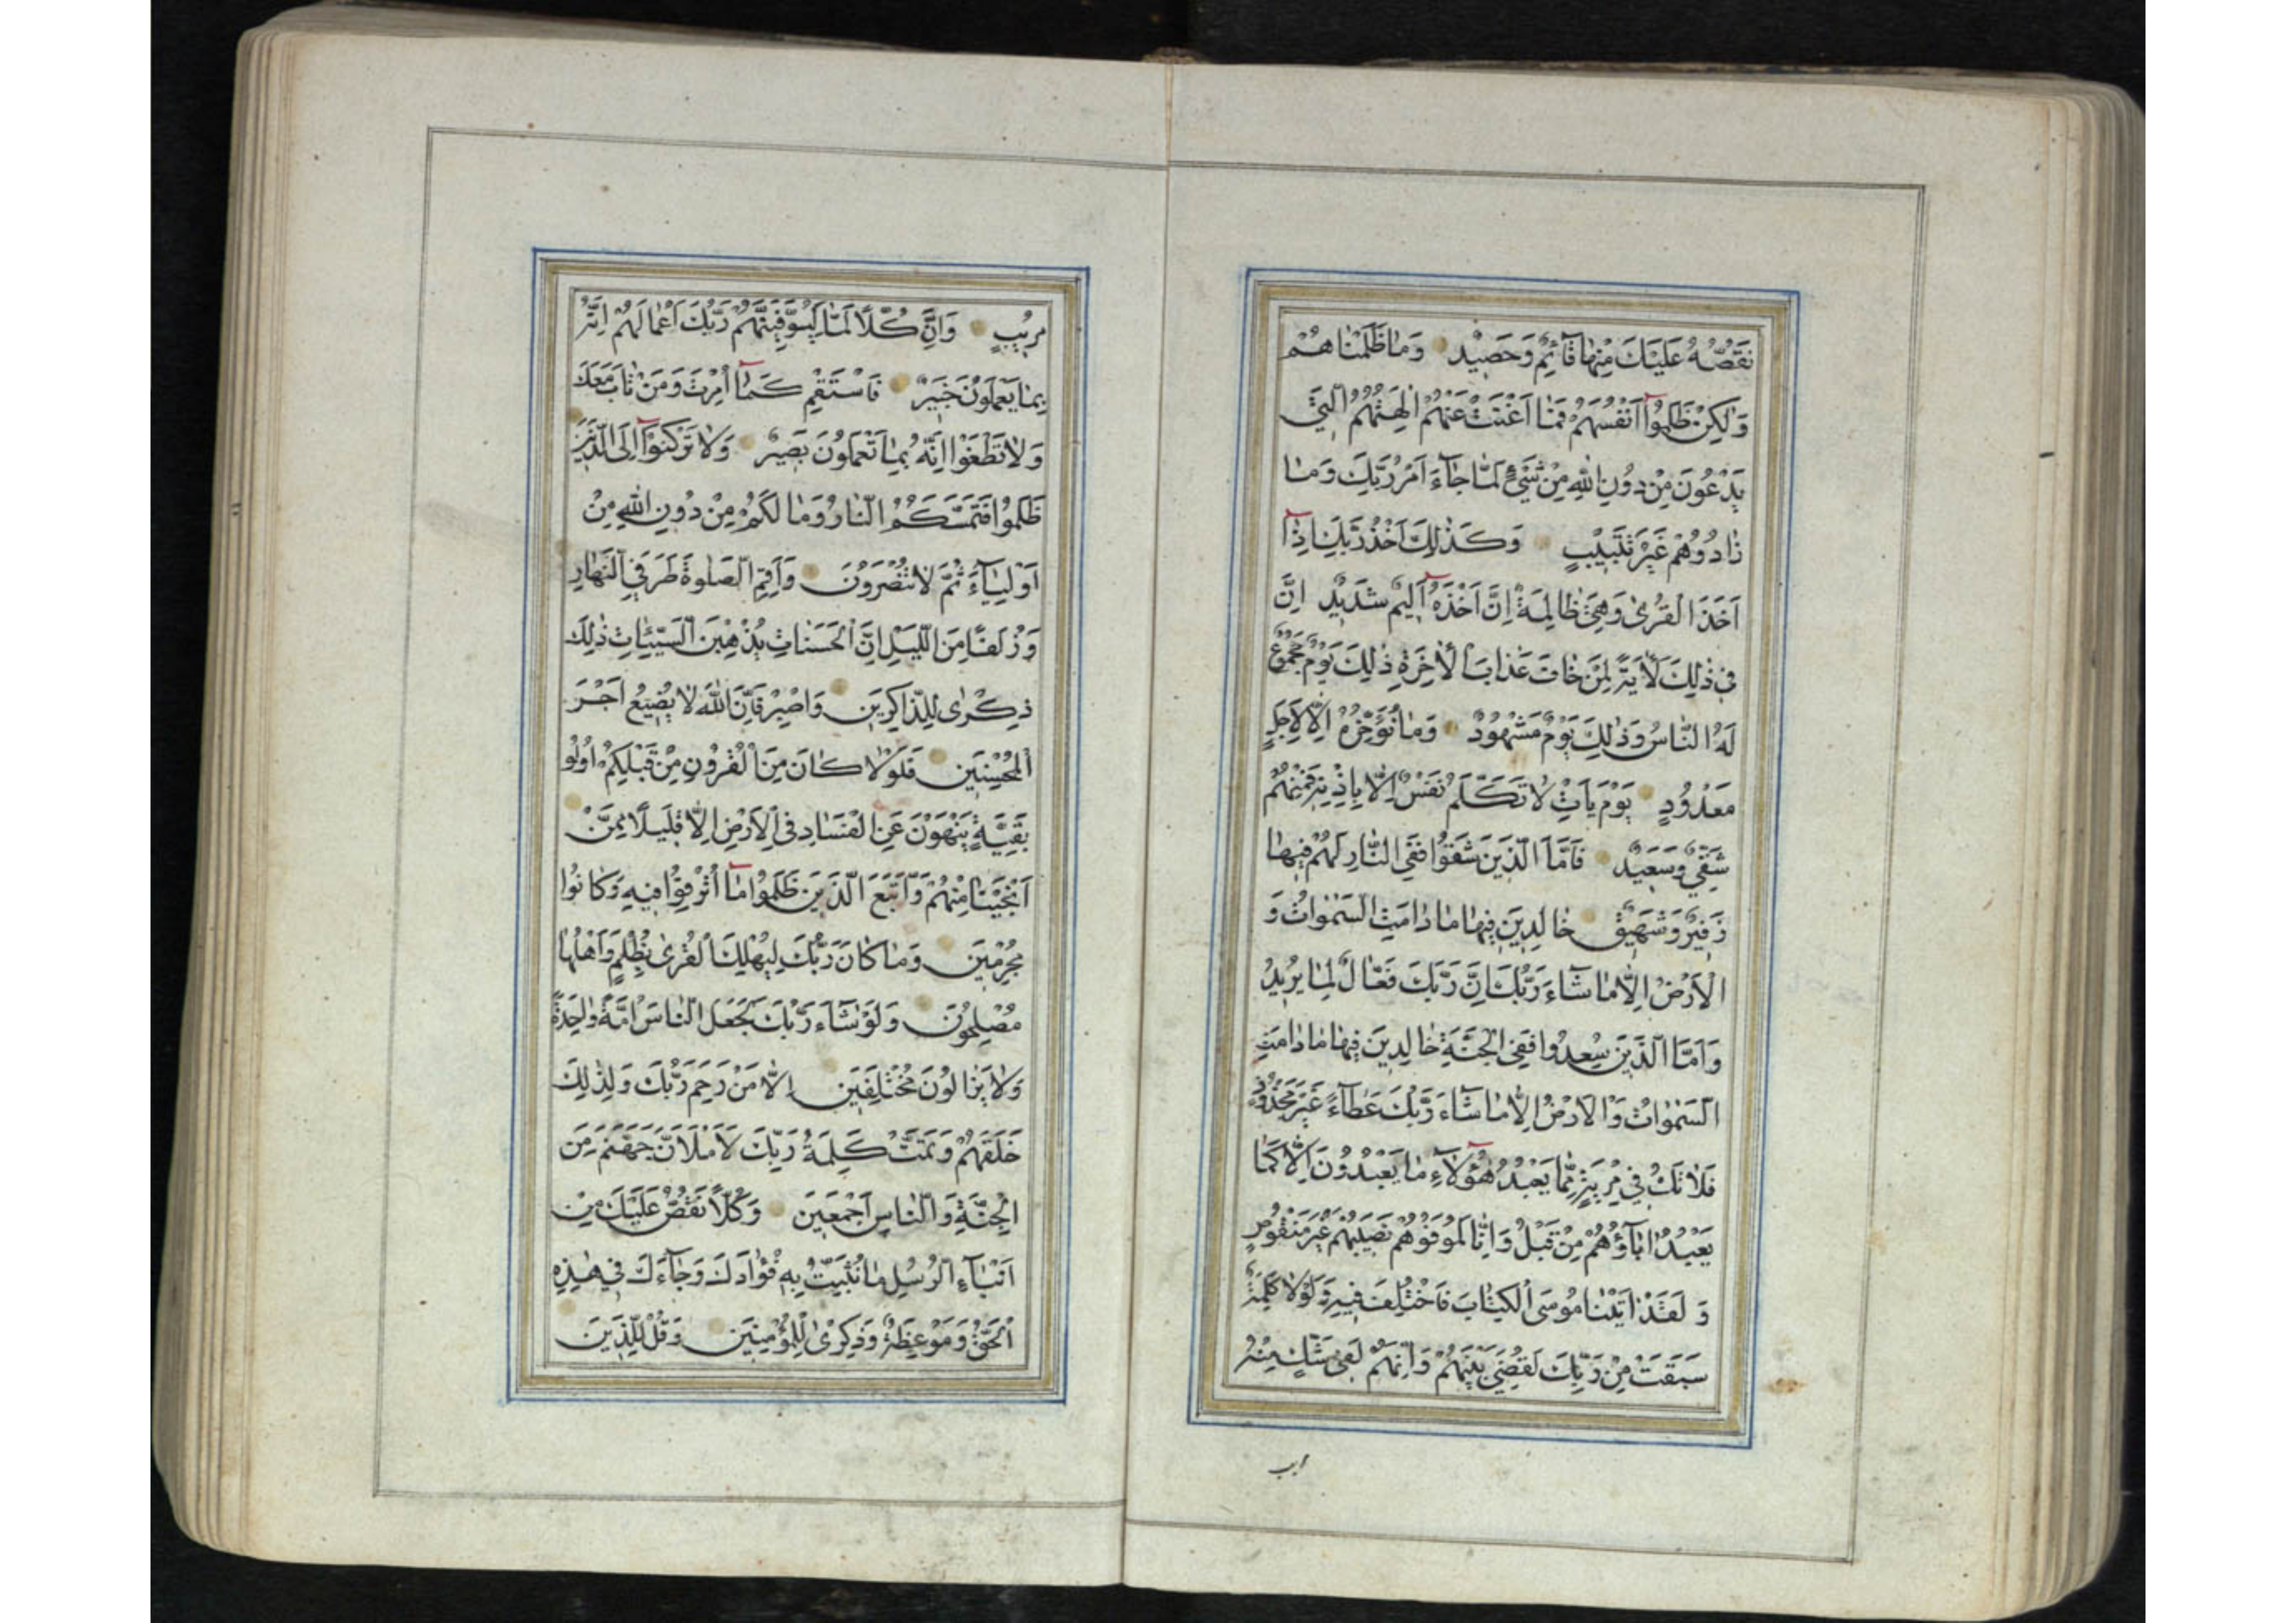 نَقُصُّهُ عَلَيْكَ مِنْهَا قَآئِمٌ وَحَصِيدٌ وَمَا ظَلَمْنَاهُمْ
وَلٰكِنْ ظَلَمُوٓا اَنْفُسَهُمْ فَمَا اَغْنَتْ عَنْهُمْ اٰلِهَتُهُمُ الَّتِي
يَدْعُونَ مِنْ دُونِ اللّٰهِ مِنْ شَيْءٍ لَمَّا جَآءَ اَمْرُ رَبِّكَ وَمَا
زَادُوهُمْ غَيْرَ تَتْبِيبٍ وَكَذٰلِكَ اَخْذُ رَبِّكَ اِذَآ
اَخَذَ الْقُرٰى وَهِيَ ظَالِمَةٌ اِنَّ اَخْذَهُٓ اَلِيمٌ شَدِيدٌ اِنَّ
فِي ذٰلِكَ لَاٰيَةً لِمَنْ خَافَ عَذَابَ الْاٰخِرَةِ ذٰلِكَ يَوْمٌ مَجْمُوعٌ
لَهُ النَّاسُ وَذٰلِكَ يَوْمٌ مَشْهُودٌ وَمَا نُؤَخِّرُهُ اِلَّا لِاَجَلٍ
مَعْدُودٍ يَوْمَ يَاْتِ لَا تَكَلَّمُ نَفْسٌ اِلَّا بِاِذْنِهِ فَمِنْهُمْ
شَقِيٌّ وَسَعِيدٌ فَاَمَّا الَّذِينَ شَقُوا فَفِي النَّارِ لَهُمْ فِيهَا
زَفِيرٌ وَشَهِيقٌ خَالِدِينَ فِيهَا مَا دَامَتِ السَّمٰوَاتُ وَ
الْاَرْضُ اِلَّا مَا شَآءَ رَبُّكَ اِنَّ رَبَّكَ فَعَّالٌ لِمَا يُرِيدُ
وَاَمَّا الَّذِينَ سُعِدُوا فَفِي الْجَنَّةِ خَالِدِينَ فِيهَا مَا دَامَتِ
السَّمٰوَاتُ وَالْاَرْضُ اِلَّا مَا شَآءَ رَبُّكَ عَطَآءً غَيْرَ مَجْذُوذٍ
فَلَا تَكُ فِي مِرْيَةٍ مِمَّا يَعْبُدُ هٰٓؤُلَآءِ مَا يَعْبُدُونَ اِلَّا كَمَا
يَعْبُدُ اٰبَآؤُهُمْ مِنْ قَبْلُ وَاِنَّا لَمُوَفُّوهُمْ نَصِيبَهُمْ غَيْرَ مَنْقُوصٍ
وَلَقَدْ اٰتَيْنَا مُوسَى الْكِتَابَ فَاخْتُلِفَ فِيهِ وَلَوْلَا كَلِمَةٌ
سَبَقَتْ مِنْ رَبِّكَ لَقُضِيَ بَيْنَهُمْ وَاِنَّهُمْ لَفِي شَكٍّ مِنْهُ
مُرِيبٍ وَاِنَّ كُلًّا لَمَّا لَيُوَفِّيَنَّهُمْ رَبُّكَ اَعْمَالَهُمْ اِنَّهُ
بِمَا يَعْمَلُونَ خَبِيرٌ فَاسْتَقِمْ كَمَآ اُمِرْتَ وَمَنْ تَابَ مَعَكَ
وَلَا تَطْغَوْا اِنَّهُ بِمَا تَعْمَلُونَ بَصِيرٌ وَلَا تَرْكَنُوٓا اِلَى الَّذِينَ
ظَلَمُوا فَتَمَسَّكُمُ النَّارُ وَمَا لَكُمْ مِنْ دُونِ اللّٰهِ مِنْ
اَوْلِيَآءَ ثُمَّ لَا تُنْصَرُونَ وَاَقِمِ الصَّلٰوةَ طَرَفَيِ النَّهَارِ
وَزُلَفًا مِنَ اللَّيْلِ اِنَّ الْحَسَنَاتِ يُذْهِبْنَ السَّيِّئَاتِ ذٰلِكَ
ذِكْرٰى لِلذَّاكِرِينَ وَاصْبِرْ فَاِنَّ اللّٰهَ لَا يُضِيعُ اَجْرَ
الْمُحْسِنِينَ فَلَوْلَا كَانَ مِنَ الْقُرُونِ مِنْ قَبْلِكُمْ اُولُوا
بَقِيَّةٍ يَنْهَوْنَ عَنِ الْفَسَادِ فِي الْاَرْضِ اِلَّا قَلِيلًا مِمَّنْ
اَنْجَيْنَا مِنْهُمْ وَاتَّبَعَ الَّذِينَ ظَلَمُوا مَآ اُتْرِفُوا فِيهِ وَكَانُوا
مُجْرِمِينَ وَمَا كَانَ رَبُّكَ لِيُهْلِكَ الْقُرٰى بِظُلْمٍ وَاَهْلُهَا
مُصْلِحُونَ وَلَوْ شَآءَ رَبُّكَ لَجَعَلَ النَّاسَ اُمَّةً وَاحِدَةً
وَلَا يَزَالُونَ مُخْتَلِفِينَ اِلَّا مَنْ رَحِمَ رَبُّكَ وَلِذٰلِكَ
خَلَقَهُمْ وَتَمَّتْ كَلِمَةُ رَبِّكَ لَاَمْلَاَنَّ جَهَنَّمَ مِنَ
الْجِنَّةِ وَالنَّاسِ اَجْمَعِينَ وَكُلًّا نَقُصُّ عَلَيْكَ مِنْ
اَنْبَآءِ الرُّسُلِ مَا نُثَبِّتُ بِهِ فُؤَادَكَ وَجَآءَكَ فِي هٰذِهِ
الْحَقُّ وَمَوْعِظَةٌ وَذِكْرٰى لِلْمُؤْمِنِينَ وَقُلْ لِلَّذِينَ